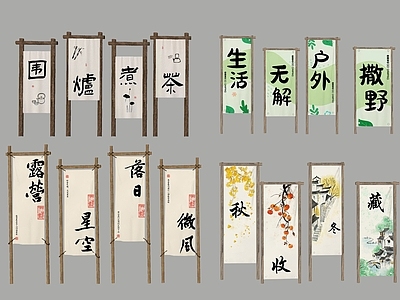 围
爐
煮
茶
生活
无解
户外
撒野
露營
星空
落日
微风
秋
收
冬
藏